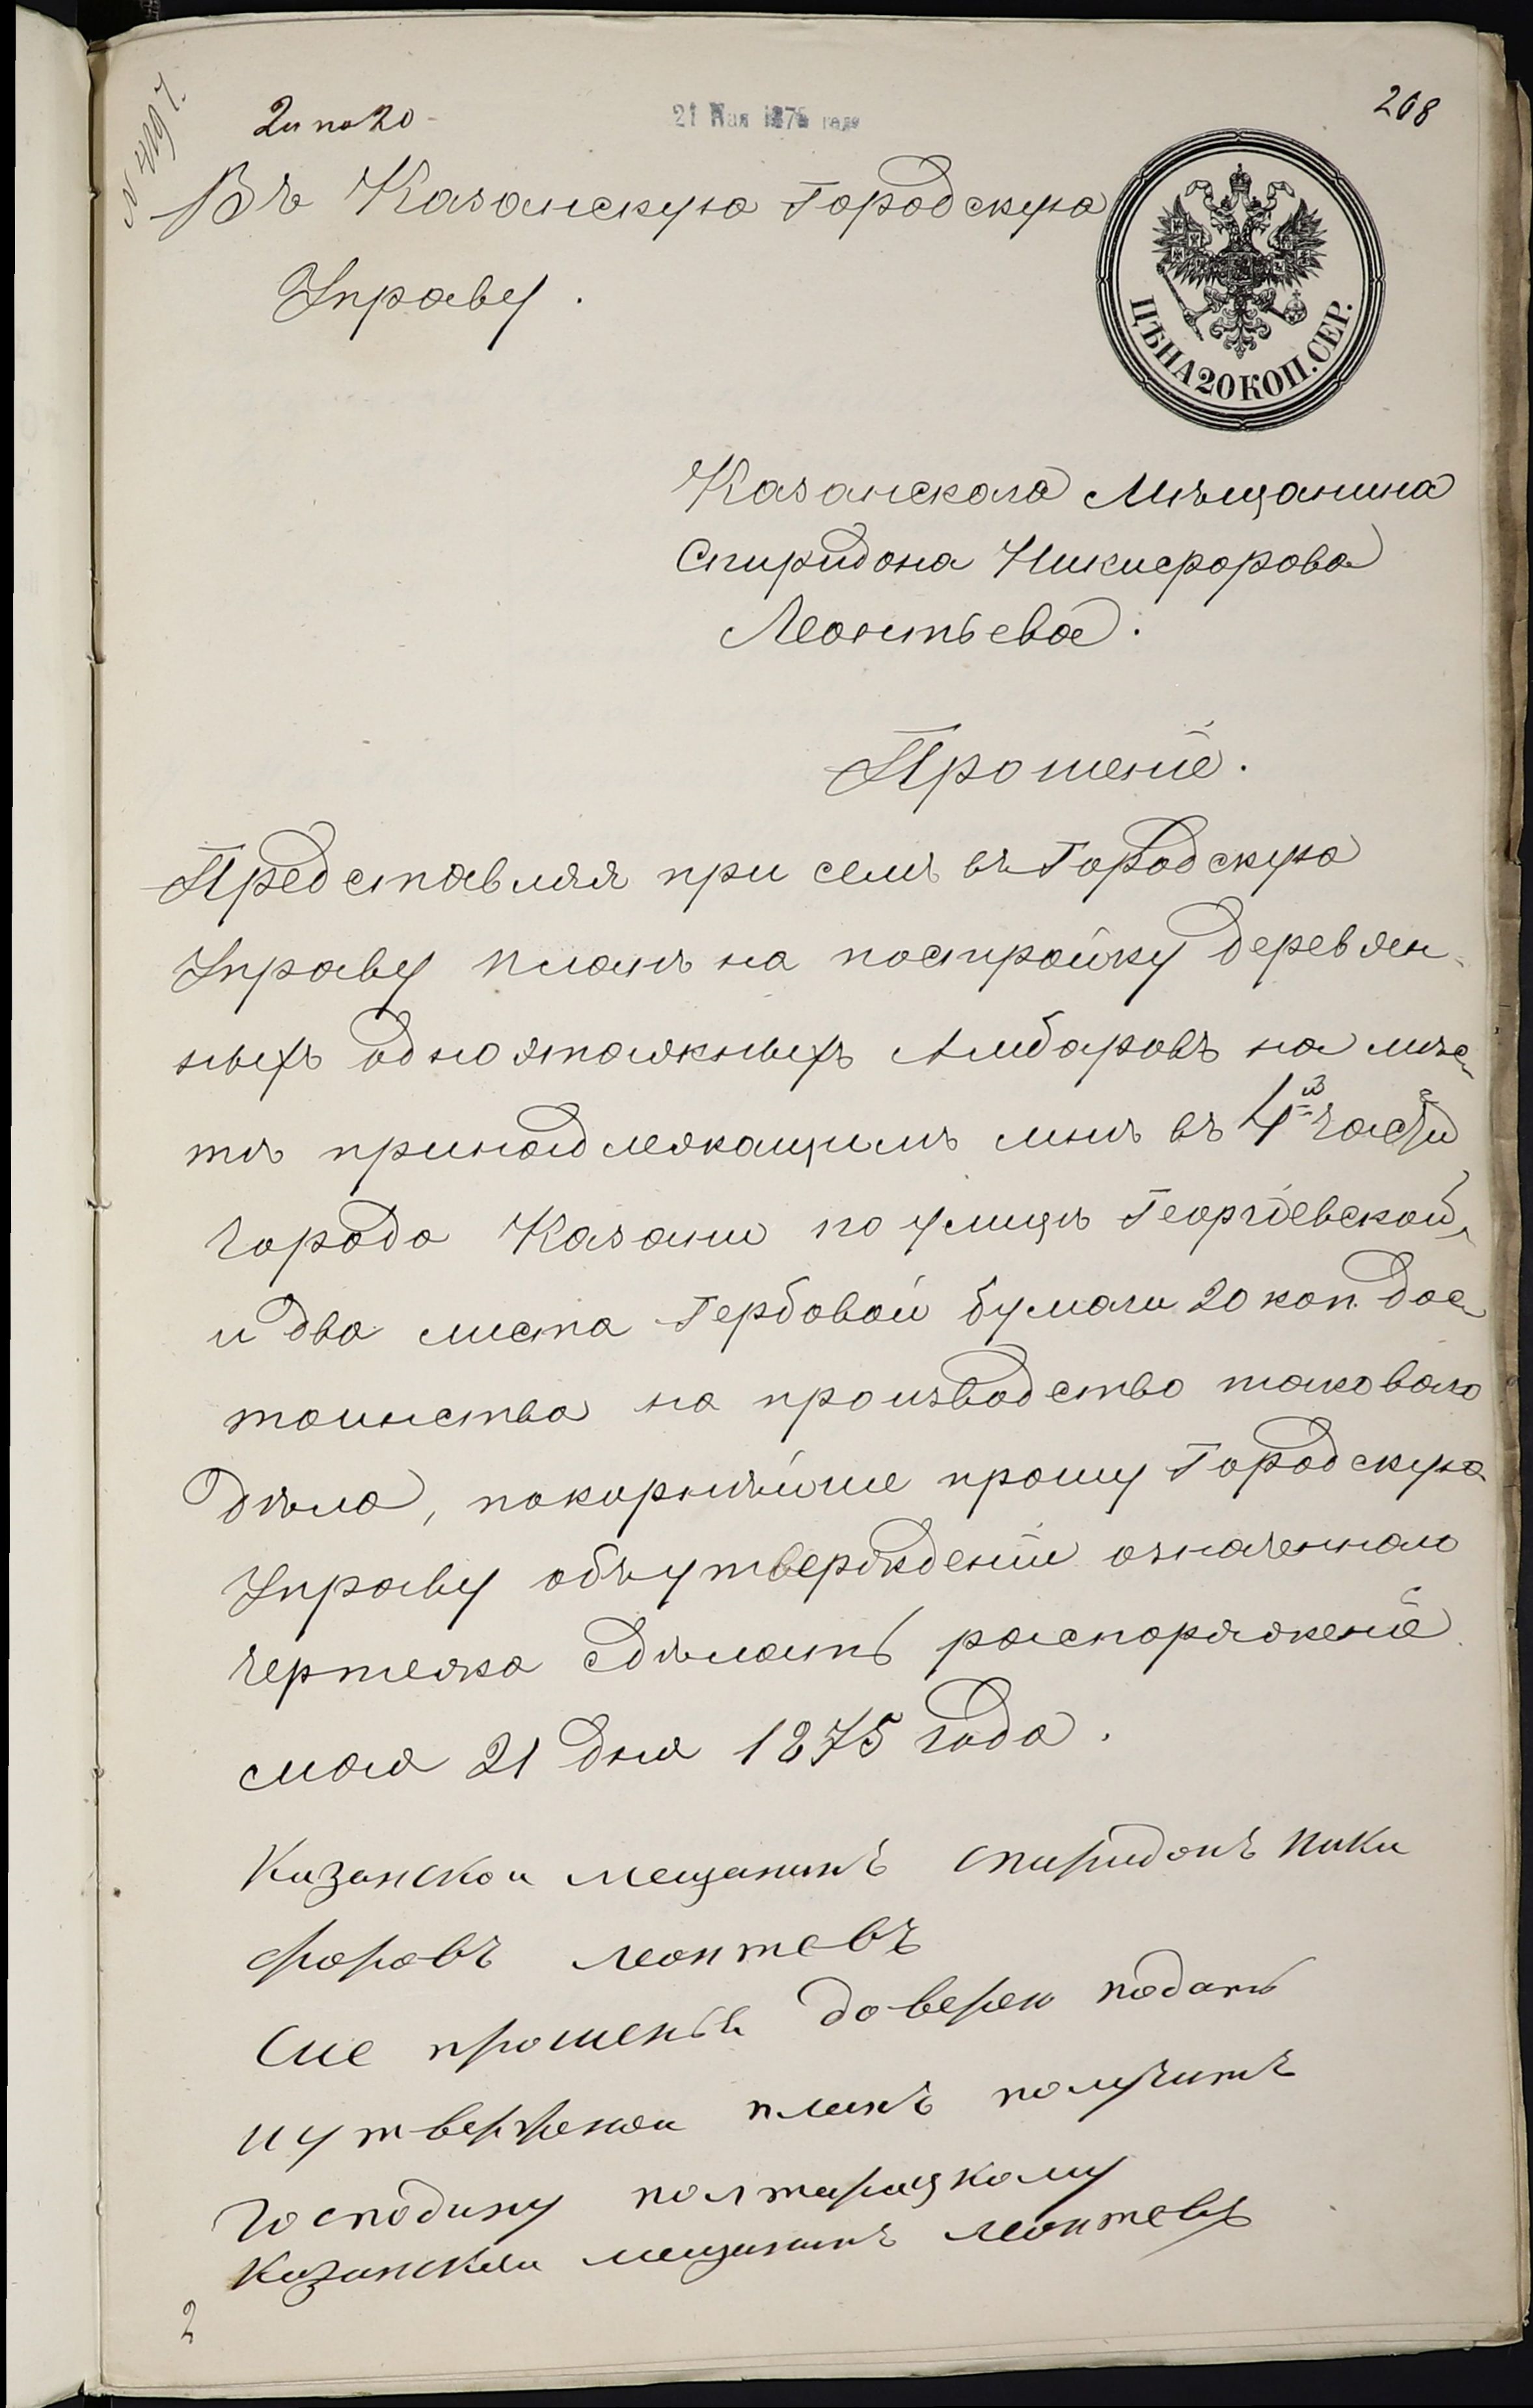 2л по 20
21 Мая 1875 года
268
Въ Казанскую Городскую
Управу.
ЦѢНА 20 КОП. СЕР.
Казанскаго Мѣщанина
Спиридона Никифорова
Леонтьева.
Прошеніе.
Представляя при семъ въ Городскую
Управу планъ на постройку деревян-
ныхъ одноэтажныхъ Амбаровъ на мѣс-
тѣ принадлежащимъ мнѣ въ 4й части
города Казани по улицѣ Георгіевской,
и два листа Гербовой бумаги 20 коп. дос-
тоинства на производство таковаго
дѣла, покорнѣйше прошу Городскую
Управу объ утвержденіи означеннаго
чертежа сдѣлать распоряженіе.
мая 21 дня 1875 года.
Казанскои мещанинъ спиридонъ ники
форовъ леонтевъ
Сие прошенье доверею подать
и утвержоной планъ получить
господину полторацкому
казанскои мещанинъ леонтевъ
2